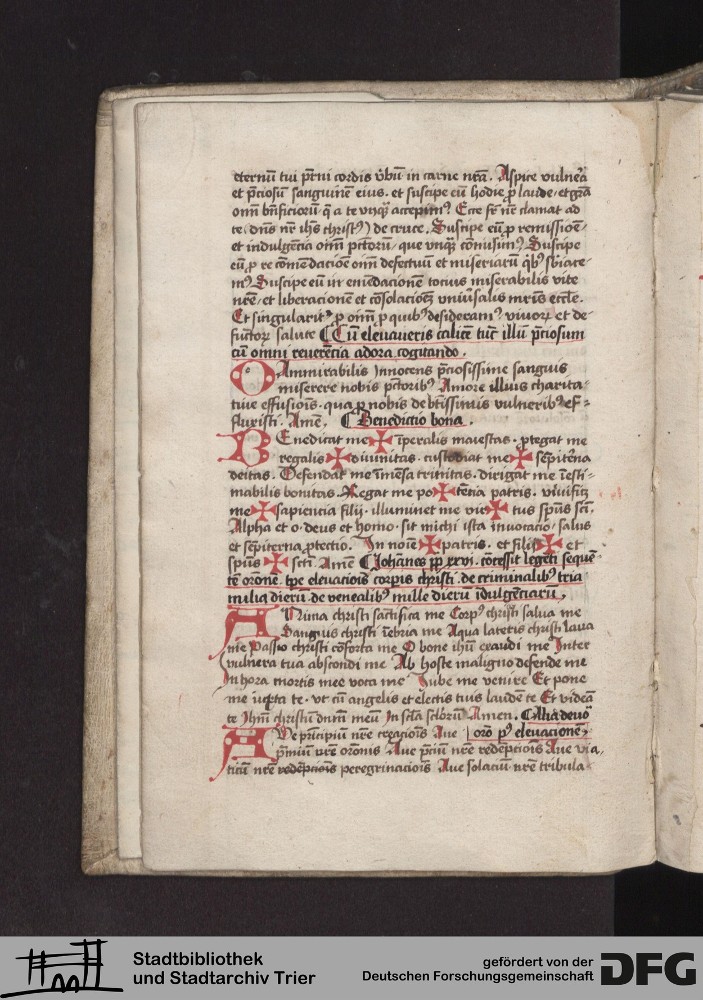 eternū tui pr̄ni cordis v̄bū in carne nr̄a. Aspice vulnera
et p̄ciosū sanguinē eius. et suscipe eū hodie p̱ laude et gr̄a
om̄ bn̄ficiorū q̄ a te vnqꝫ accepimꝰ Ecce fr̄ nr̄ clamat ad
te (dn̄s nr̄ ihs christꝰ) de cruce. Suscipe eū p̱ remissione
et indulgēcia oīm pc̄torū que vnqꝫ cōmisimꝰ Suscipe
eū p̱ re cōmēdacioē oīm defectuū et miseriarū qͥbꝰ sbiace-
mꝰ Suscipe eū in emēdacionē tocius miserabilis vite
nr̄e et liberacionē et cōsolacioēꝫ vniūsalis mr̄is eccl̄e.
Et singularitꝰ p̱ oīm p̱ quibꝰ desideramꝰ viuorꝝ et de-
functorꝝ salute Cū eleuaueris calicē tūc illū p̄ciosum
cū omni reuerēcia adora cogitando.
O Ammirabilis Innocens p̄ciosissime sanguis
miserere nobis pc̄toribꝰ Amore illius charita-
tiue effusiōis. qua p̱ nobis de btissimis vulneribꝰ ef-
fluxisti. Amē. Benedictio bona.
BEnedicat me ✠ īperalis maiestas. p̱tegat me
regalis ✠ diuinitas. custodiat me ✠ sēpitērna
deitas. Defendat me īmēsa trinitas. dirigat me īesti-
mabilis bonitas. Regat me po ✠ tēcia patris. viuificꝫ
me ✠ sapiencia filij. illuminet me vir ✠ tus sp̄us sc̄i.
Alpha et o. deus et homo. sit michi ista inuocacio. salus
et sēpiterna p̱tectio. In noīe ✠ patris. et filij ✠ et
sp̄us ✠ sc̄ti. Amē Johānes pp̄ xxvi. cōcessit legēti sequē-
tē orōnē. tp̄e eleuaciōis corpis christi. de criminalibꝰ tria
milia dierū. de venealibꝰ mille dierū īdulgēciarū.
ANima christi sāctifica me Corpꝰ christi salua me
Sanguis christi īebria me Aqua lateris christi laua
me Passio christi cōforta me O bone ihū exaudi me Inter
vulnera tua abscondi me Ab hoste maligno defende me
In hora mortis mee voca me Iube me venire Et pone
me iuxta te. vt cū angelis et electis tuis laudē te Et videā
te Ihm̄ christū dnm̄ meū In sc̄la sc̄lorū Amen. Alia deuo
AVe p̄ncipiū nr̄e creaciōis Aue orō pꝰ eleuacionē.
p̄miū nr̄e orōnis Aue p̄ciū nr̄e redēpciōis Aue via-
ticū nr̄e redēpciōis peregrinaciōis Aue solaciū nr̄e tribula
Stadtbibliothek
und Stadtarchiv Trier
gefördert von der
Deutschen Forschungsgemeinschaft
DFG